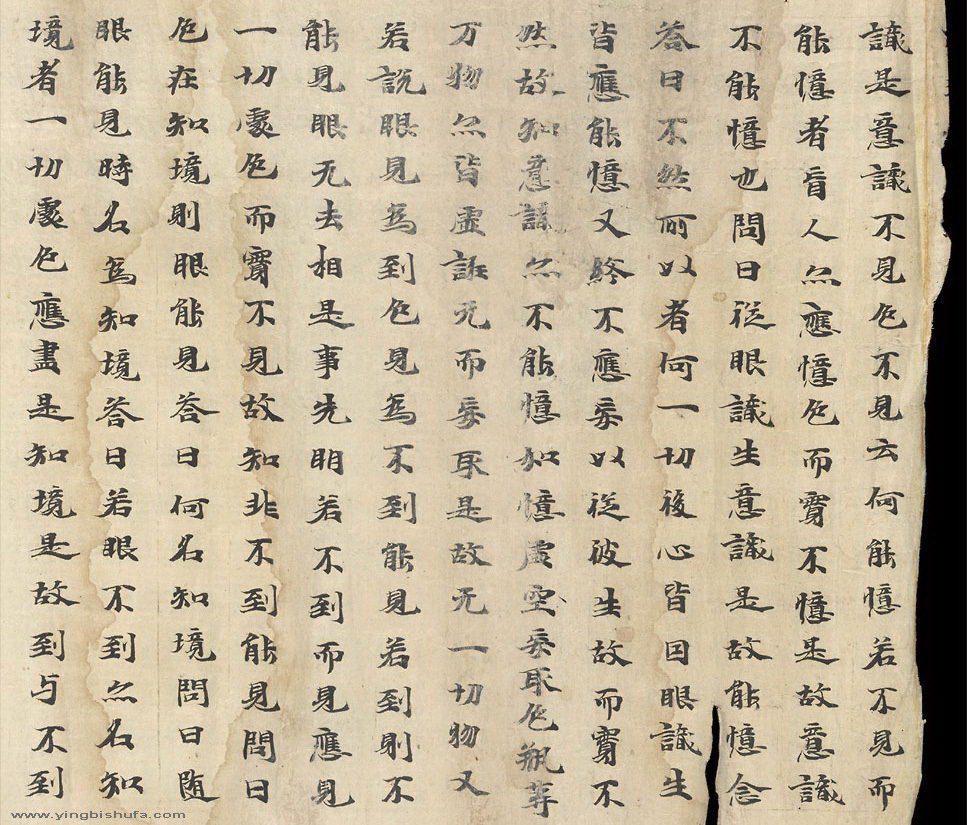 識是意識不見色不見云何能憶若不見而
能憶者盲人亦應憶色而實不憶是故意識
不能憶也問曰從眼識生意識是故能憶念
荅曰不然所以者何一切後心皆因眼識生
皆應能憶又終不應妄以從彼生故而實不
然故知意識亦不能憶如憶虛空妄取色瓶等
万物亦皆虛誑无而妄取是故无一切物又
若說眼見為到色見為不到能見若到則不
能見眼无去相是事先明若不到而見應見
一切處色而實不見故知非不到能見問曰
色在知境則眼能見荅曰何名知境問曰随
眼能見時名為知境荅曰若眼不到亦名知
境者一切處色應盡是知境是故到与不到
www.yingbishufa.com